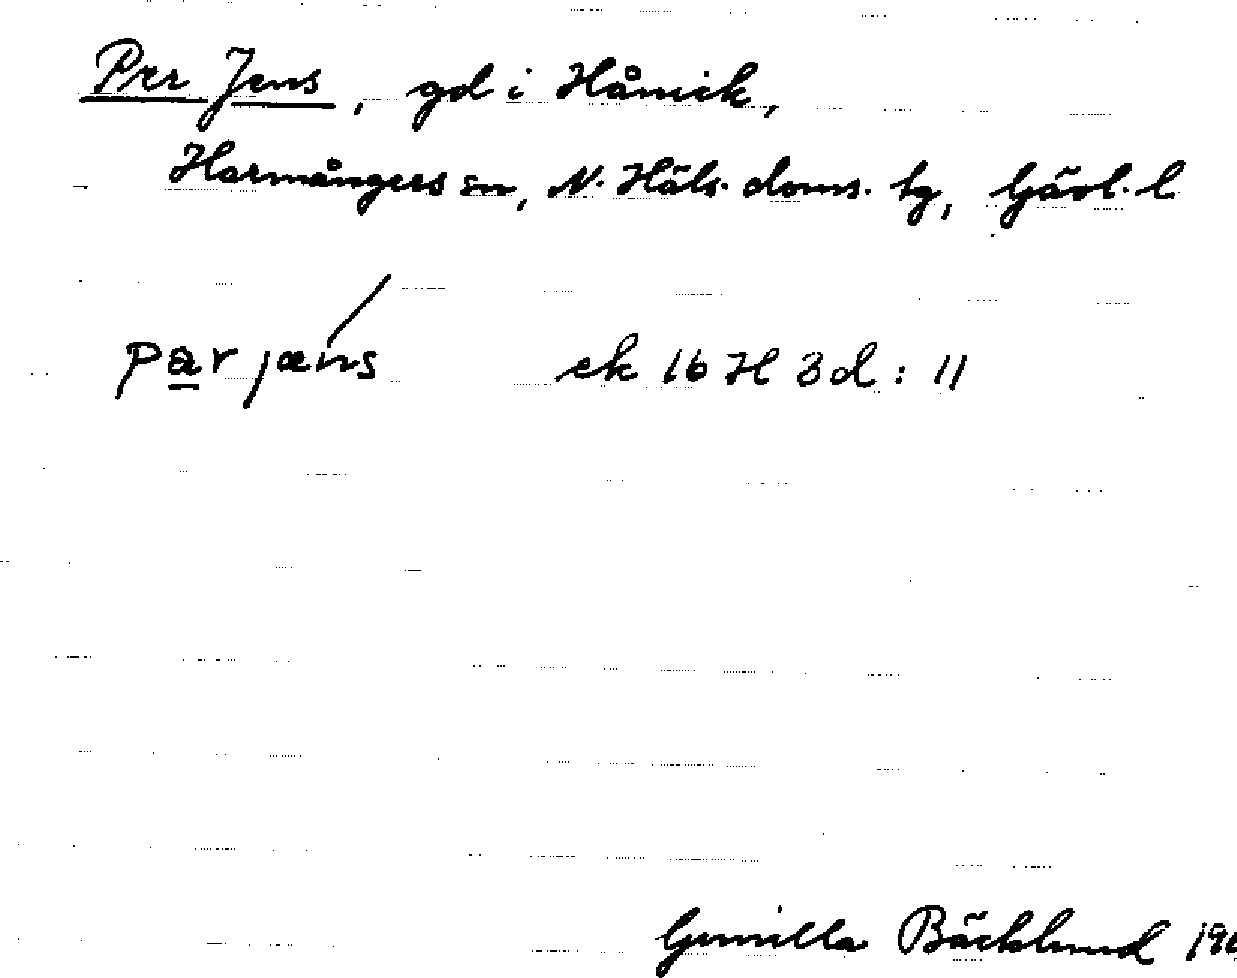 Per Jens, gd i Hånick,
Harmångers sn, N. Häls. doms. tg, Gävl. l
par jæns ek 16 H 3d : 11
Gunilla Bäcklund 196